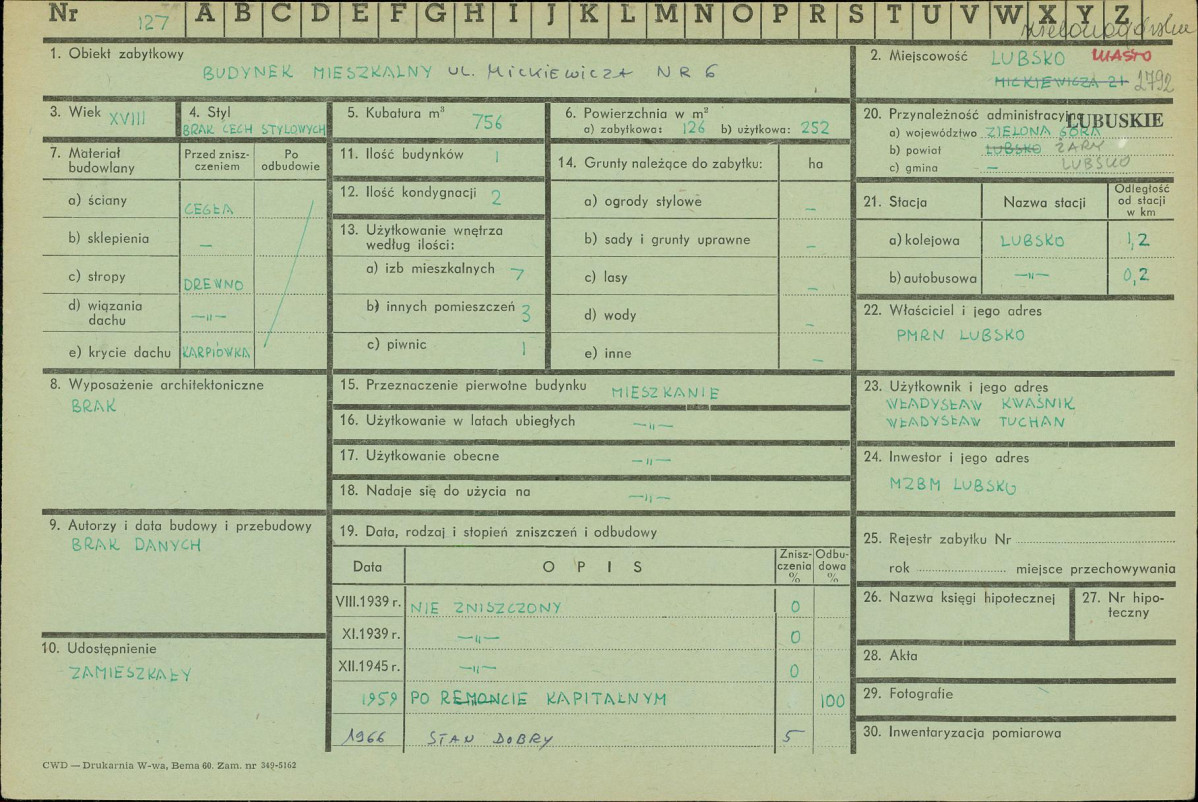 Nr 127 A B C D E F G H I J K L M N O P R S T U V W X Y Z
1. Obiekt zabytkowy
BUDYNEK MIESZKALNY UL. MICKIEWICZA NR 6
2. Miejscowość LUBSKO MIASTO
MICKIEWICZA 21 2792
3. Wiek XVIII
4. Styl
BRAK CECH STYLOWYCH
5. Kubatura m³ 756
6. Powierzchnia w m²
a) zabytkowa: 126 b) użytkowa: 252
20. Przynależność administracyjna
LUBUSKIE
a) województwo ZIELONA GÓRA
b) powiat LUBSKO ŻARY
c) gmina — LUBSKO
7. Materiał budowlany
Przed zniszczeniem
Po odbudowie
a) ściany CEGŁA
b) sklepienia —
c) stropy DREWNO
d) wiązania dachu —„—
e) krycie dachu KARPIÓWKA
11. Ilość budynków 1
12. Ilość kondygnacji 2
13. Użytkowanie wnętrza
według ilości:
a) izb mieszkalnych 7
b) innych pomieszczeń 3
c) piwnic 1
14. Grunty należące do zabytku: ha
a) ogrody stylowe —
b) sady i grunty uprawne —
c) lasy —
d) wody —
e) inne —
21. Stacja Nazwa stacji Odległość od stacji w km
a) kolejowa LUBSKO 1,2
b) autobusowa —„— 0,2
22. Właściciel i jego adres
PMRN LUBSKO
8. Wyposażenie architektoniczne
BRAK
15. Przeznaczenie pierwotne budynku MIESZKANIE
16. Użytkowanie w latach ubiegłych —„—
17. Użytkowanie obecne —„—
18. Nadaje się do użycia na —„—
23. Użytkownik i jego adres
WŁADYSŁAW KWAŚNIK
WŁADYSŁAW TUCHAN
24. Inwestor i jego adres
MZBM LUBSKO
9. Autorzy i data budowy i przebudowy
BRAK DANYCH
10. Udostępnienie
ZAMIESZKAŁY
19. Data, rodzaj i stopień zniszczeń i odbudowy
Data OPIS Zniszczenia % Odbudowa %
VIII.1939 r. NIE ZNISZCZONY 0
XI.1939 r. —„— 0
XII.1945 r. —„— 0
1959 PO REMONCIE KAPITALNYM 100
1966 STAN DOBRY 5
25. Rejestr zabytku Nr
rok miejsce przechowywania
26. Nazwa księgi hipotecznej
27. Nr hipoteczny
28. Akta
29. Fotografie
30. Inwentaryzacja pomiarowa
CWD — Drukarnia W-wa, Bema 60. Zam. nr 349-5162